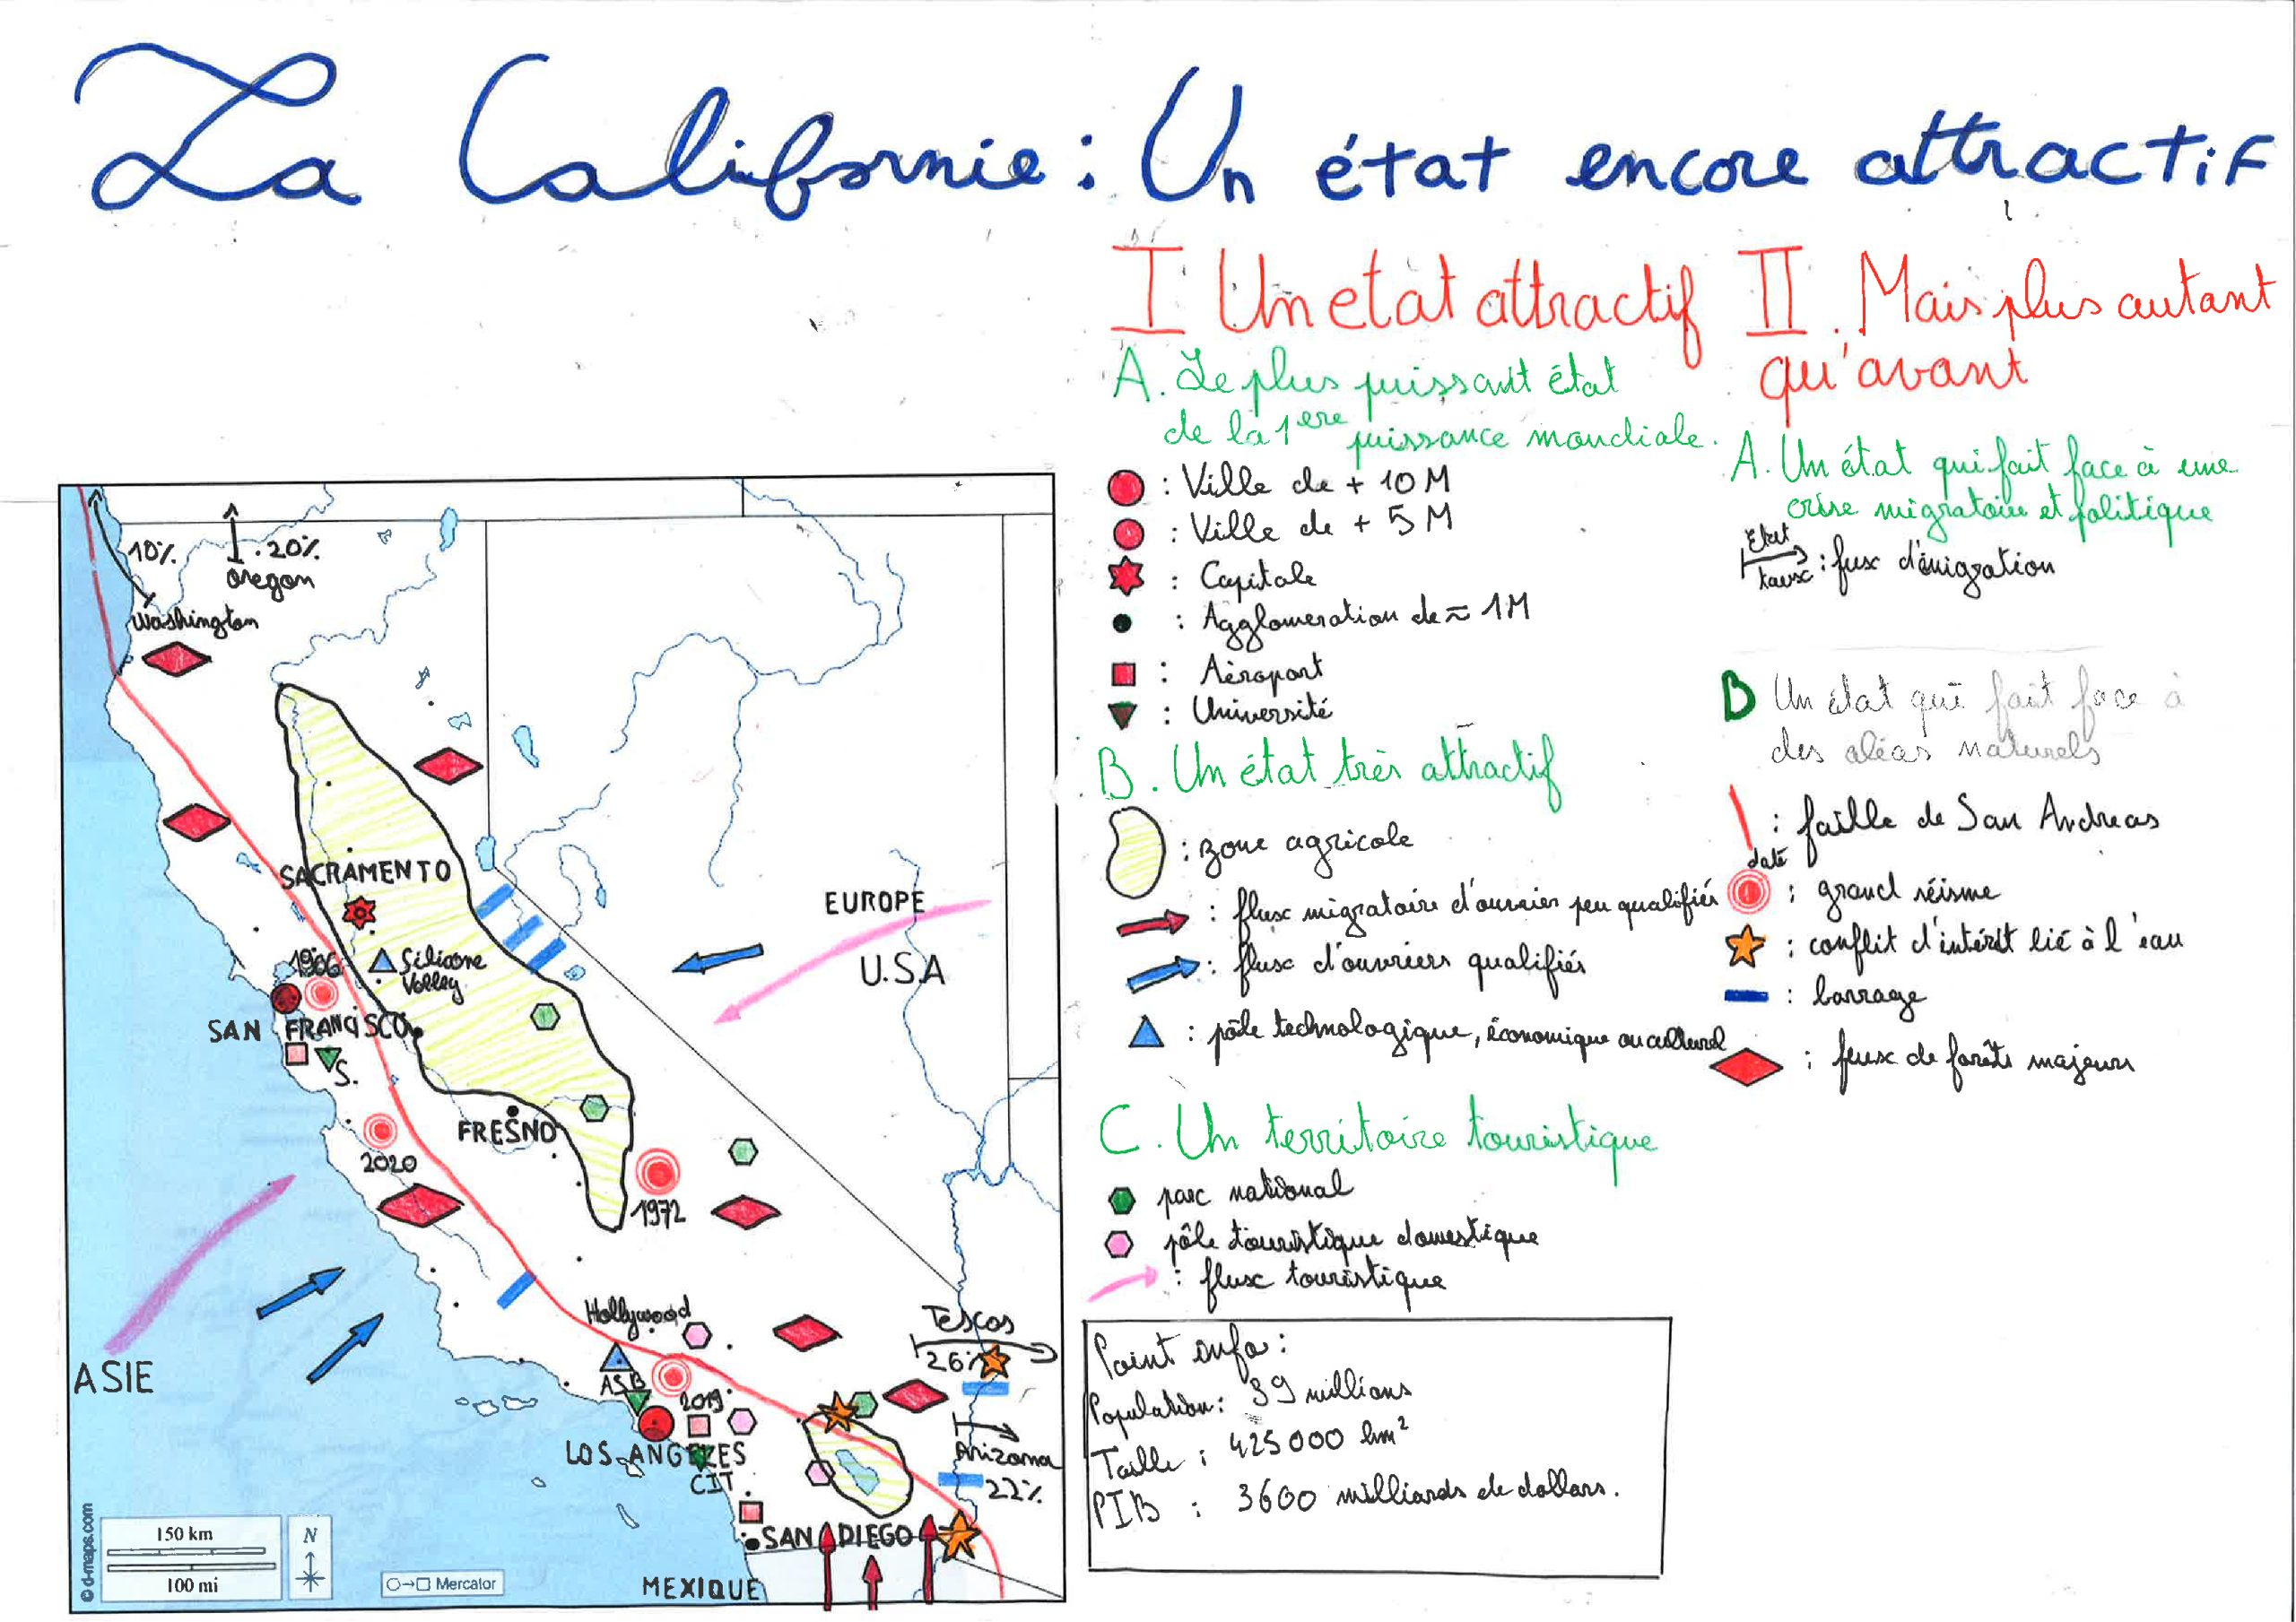 La Californie : Un état encore attractif
I Un etat attractif
A. Le plus puissant état
de la 1ere puissance mondiale.
: Ville de + 10 M
: Ville de + 5 M
: Capitale
: Agglomeration de ≈ 1M
: Aéroport
: Université
B. Un état très attractif
: zone agricole
: flux migratoire d'ouvrier peu qualifiés
: flux d'ouvriers qualifiés
: pôle technologique, économique ou culturel
C. Un territoire touristique
parc national
pôle touristique domestique
: flux touristique
Point info :
Population : 39 millions
Taille : 425000 km²
PIB : 3600 milliards de dollars.
II. Mais plus autant
qu'avant
A. Un état qui fait face à une
crise migratoire et politique
Etat
taux : flux d'émigration
B Un état qui fait face à
des aléas naturels
: faille de San Andreas
date
: grand séisme
: conflit d'intérêt lié à l'eau
: barrage
: feux de forêts majeurs
10%
20%
Oregon
Washington
SACRAMENTO
EUROPE
U.S.A
1906
Silicone
Valley
SAN FRANCISCO
S.
FRESNO
2020
1972
ASIE
Hollywood
Texas
26%
ASB
2019
LOS-ANGELES
CIT
Arizona
22%
SAN DIEGO
MEXIQUE
© d-maps.com
150 km
100 mi
N
Mercator